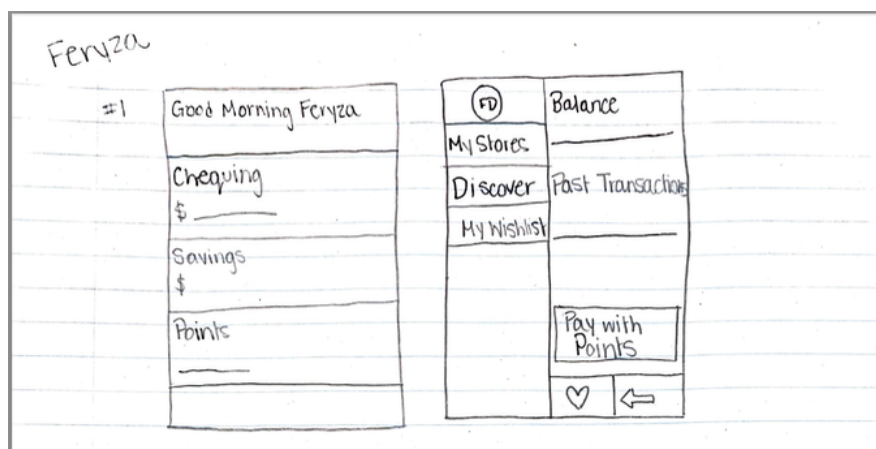 Feryza
#1
Good Morning Feryza
Chequing
$
Savings
$
Points
FD
My Stores
Discover
My Wishlist
Balance
Past Transactions
Pay with
Points